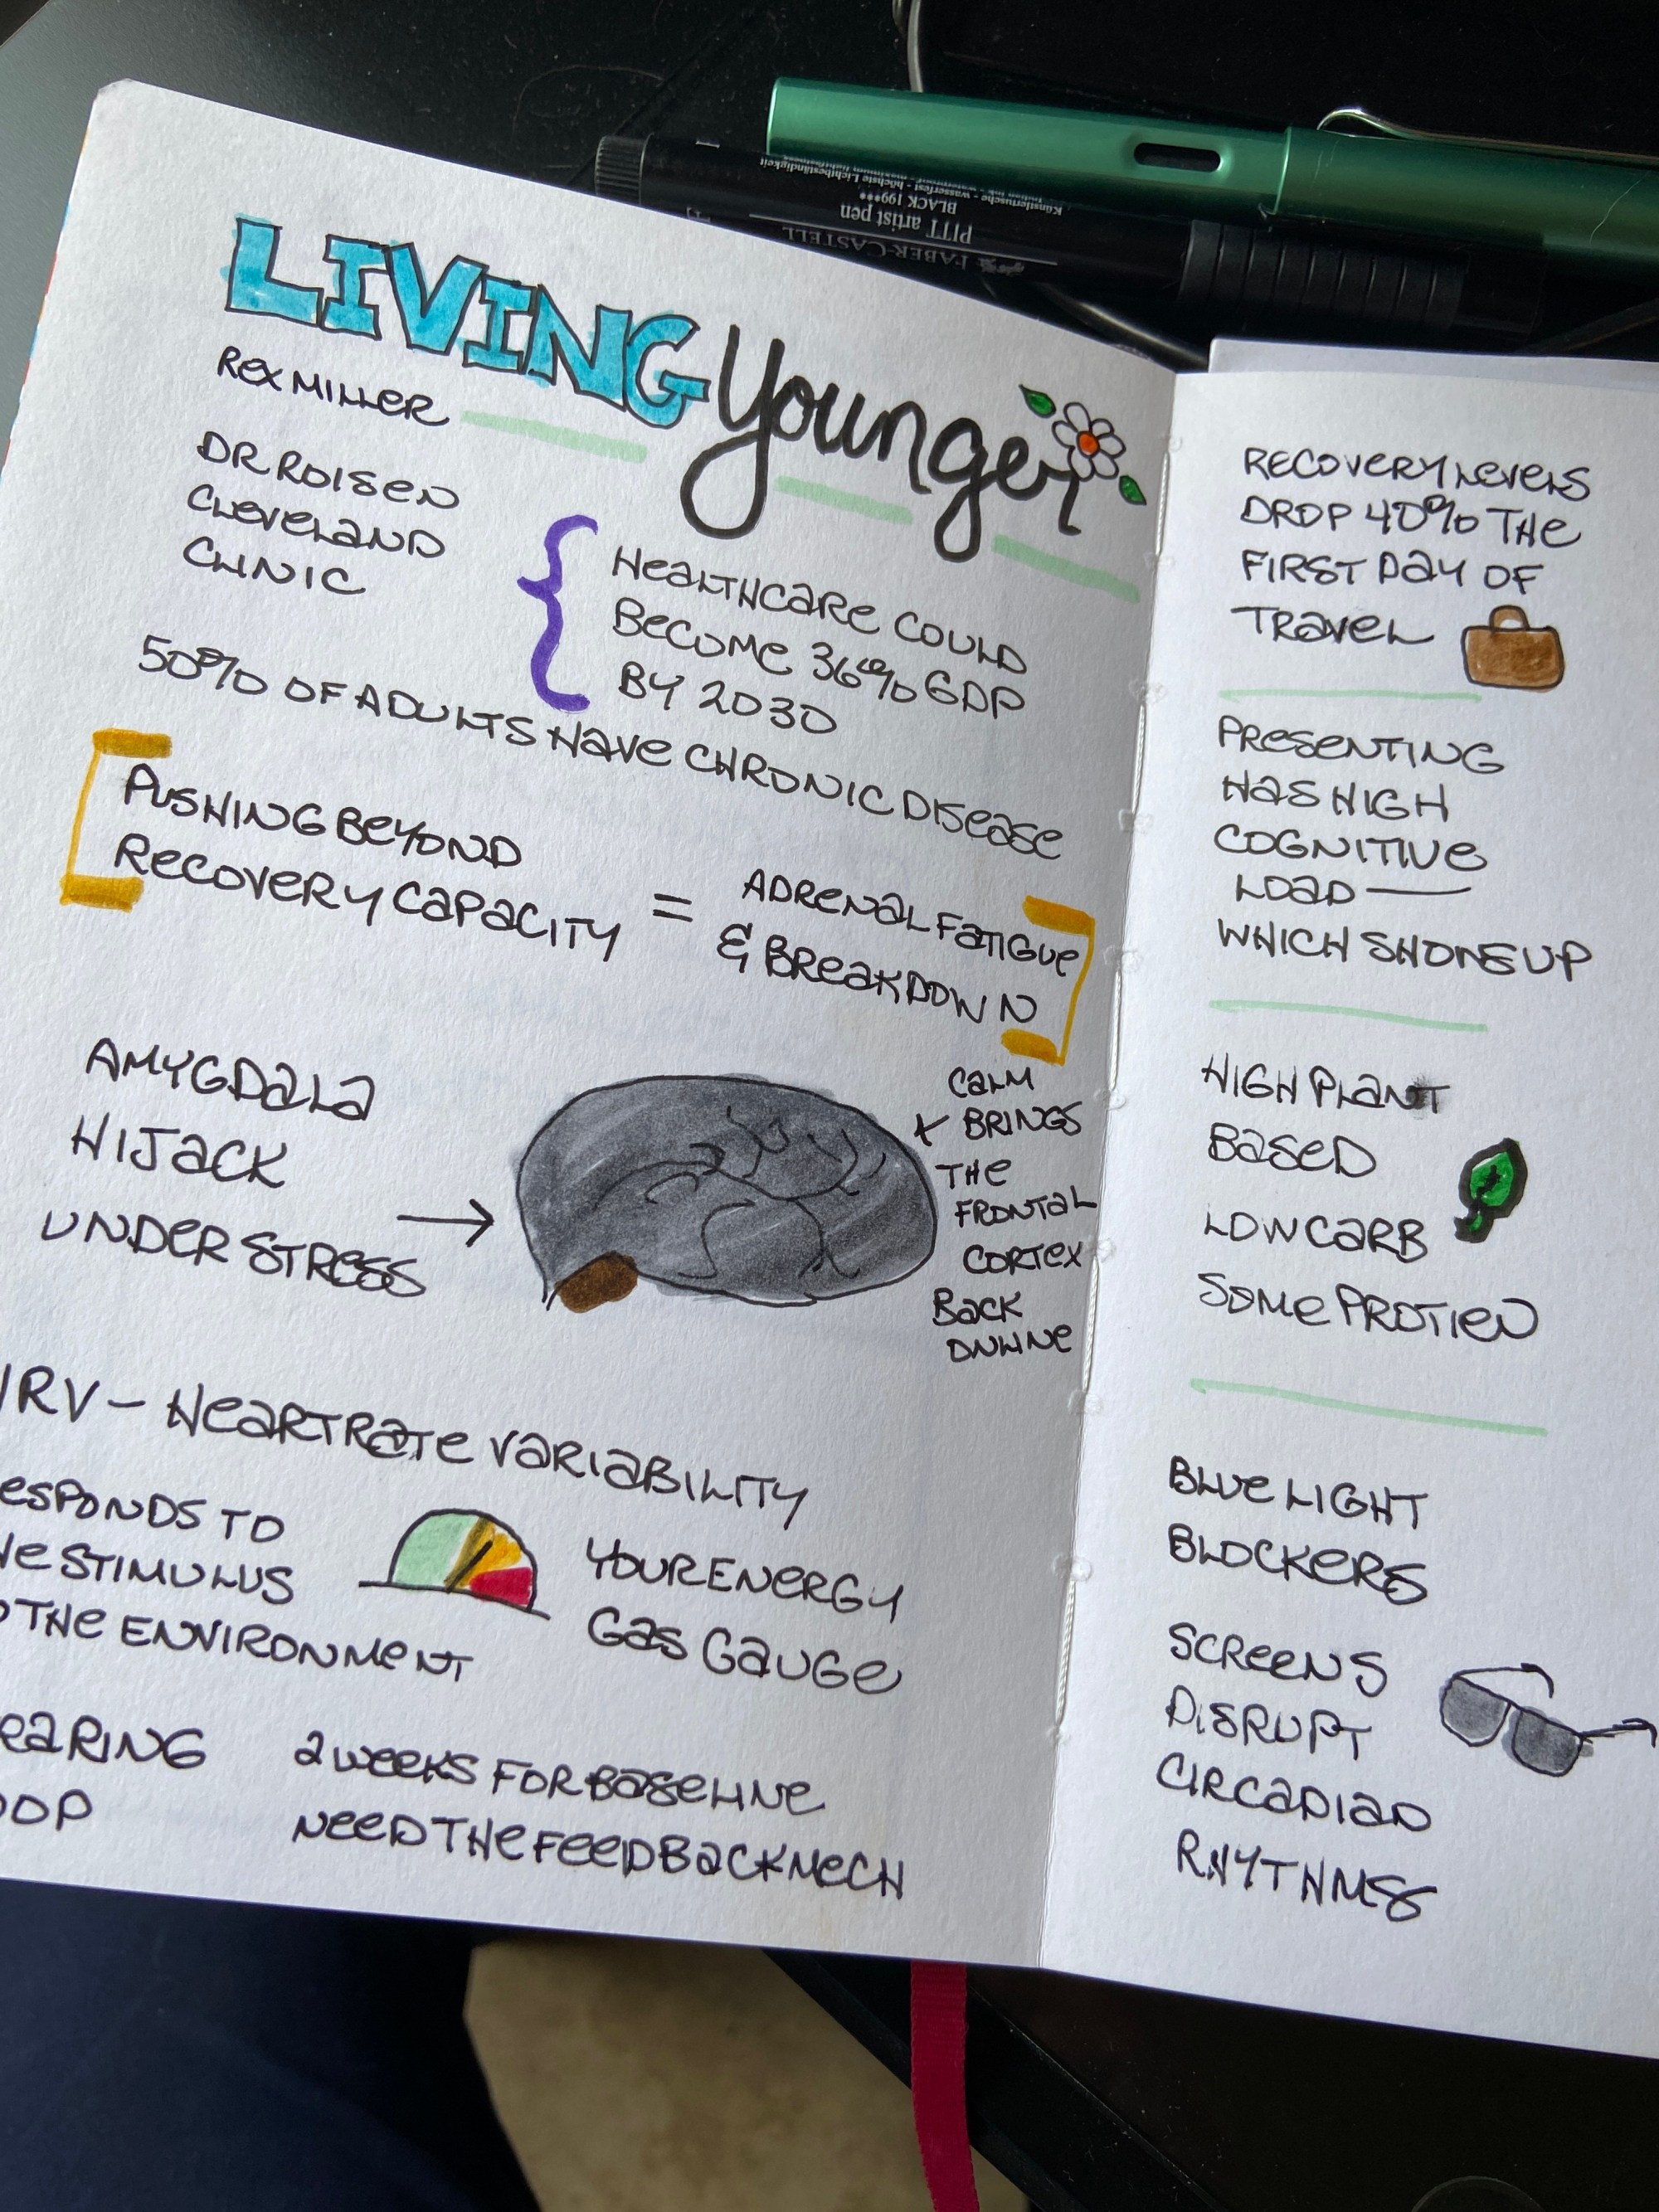 LIVING Younger
REX MILLER
DR ROISEN
CLEVELAND
CLINIC
HEALTHCARE COULD
BECOME 36% GDP
BY 2030
50% OF ADULTS HAVE CHRONIC DISEASE
PUSHING BEYOND
RECOVERY CAPACITY
=
ADRENAL FATIGUE
& BREAKDOWN
AMYGDALA
HIJACK
UNDER STRESS
CALM
BRINGS
THE
FRONTAL
CORTEX
BACK
ONLINE
HRV - HEARTRATE VARIABILITY
RESPONDS TO
STIMULUS
THE ENVIRONMENT
YOUR ENERGY
GAS GAUGE
2 WEEKS FOR BASELINE
NEED THE FEEDBACK MECH
RECOVERY LEVELS
DROP 40% THE
FIRST DAY OF
TRAVEL
PRESENTING
HAS HIGH
COGNITIVE
LOAD —
WHICH SHOWS UP
HIGH PLANT
BASED
LOW CARB
SOME PROTIEN
BLUE LIGHT
BLOCKERS
SCREENS
DISRUPT
CIRCADIAN
RHYTHMS
FABER-CASTELL
PITT artist pen
BLACK 199***